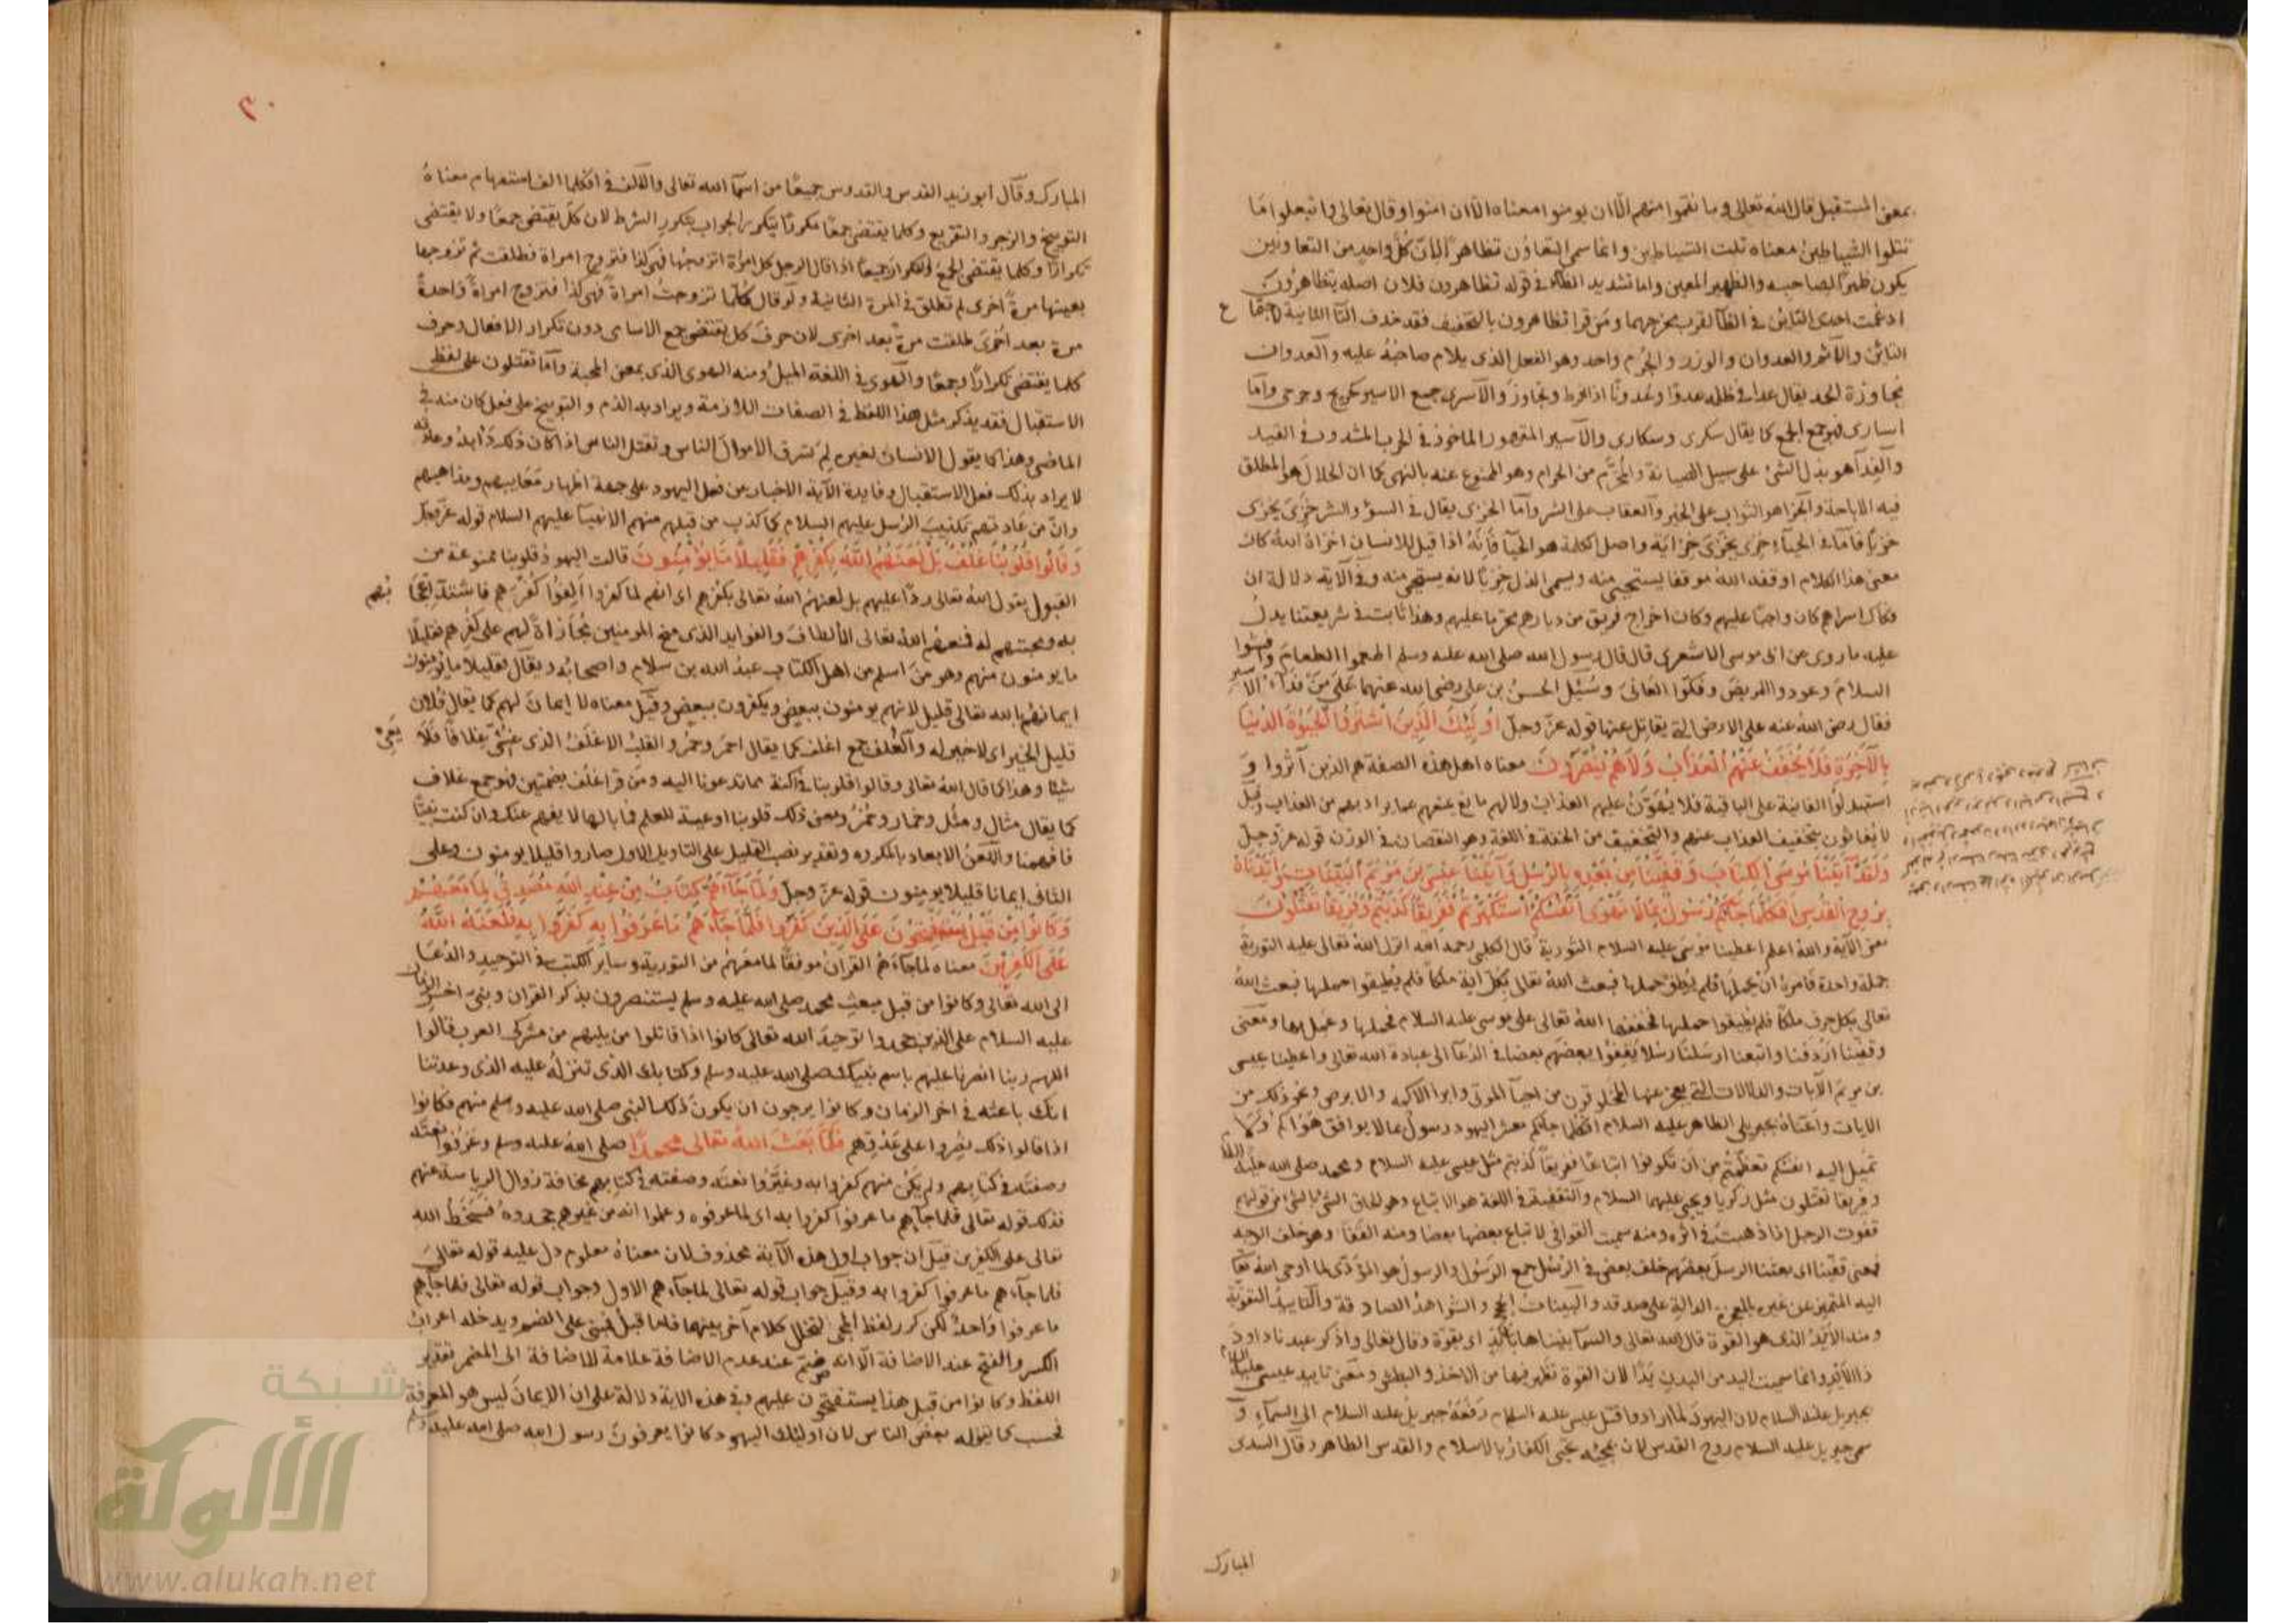 بمعنى المستقبل قال الله تعالى وما نقموا منهم الا ان يومنوا معناه الا ان امنوا وقال تعالى واتبعوا ما
تتلوا الشياطين معناه تلت الشياطين وانما سمى التعاون تظاهرا لان كل واحد من التعاونين
يكون ظهرا لصاحبه والظهير المعين واما تشديد الظاء في قوله تظاهرون فلان اصله يتظاهرون
ادغمت احدى التائين في الظا لقرب مخرجهما ومن قرا تظاهرون بالتخفيف فقد حذف التا الثانية
التائين والاثم والعدوان والوزر والجرم واحد وهو الفعل الذى يلام صاحبه عليه والعدوان
مجاوزة الحد يقال عدا في ظلمه عدوا وعدوانا اذا افرط وتجاوز والاسرى جمع الاسير كجريح وجرحى واما
اسارى فهو جمع الجمع كما يقال سكرى وسكارى والاسير المقهور الماخوذ في الحرب المشدود في القيد
والفدآ هو بذل الشئ على سبيل الصيانة والمحرم من الحرام وهو الممنوع عنه بالنهى كما ان الحلال هو المطلق
فيه الاباحة والجزا هو الثواب على الخير والعقاب على الشر واما الخزى يقال في السوء والشر خزى يخزى
خزيا فاما في الحياء خزى يخزى خزاية واصل الكلمة هو الحيآ فانه اذا قيل للانسان اخزاه الله كان
معنى هذا الكلام اوقفه الله موقفا يستحيى منه ويسمى الذل خزيا لانه يستحى منه وفى الاية دلالة ان
فكاك اسراهم كان واجبا عليهم وكان اخراج فريق من ديارهم محرما عليهم وهذا ثابت في شريعتنا يدل
عليه ما روى عن ابى موسى الاشعرى قال قال رسول الله صلى الله عليه وسلم اطعموا الطعام وافشوا
السلام وعودوا المريض وفكوا العانى وسئل الحسن بن على رضى الله عنهما على من فدآء الاسير
فقال رضى الله عنه على الارض التى يقاتل عنها قوله عز وجل اولئك الذين اشتروا الحيوة الدنيا
بالاخرة فلا يخفف عنهم العذاب ولا هم ينصرون معناه اهل هذه الصفة هم الذين آثروا و
استبدلوا الفانية على الباقية فلا يهون عليهم العذاب ولا لهم مانع عنهم عما يراد بهم من العذاب وقيل
لا يغاثون بتخفيف العذاب عنهم والتخفيف من الخفة في اللغة وهو النقصان في الوزن قوله عز وجل
ولقد آتينا موسى الكتاب وقفينا من بعده بالرسل وآتينا عيسى بن مريم البينات وايدناه
بروح القدس افكلما جاءكم رسول بما لا تهوى انفسكم استكبرتم ففريقا كذبتم وفريقا تقتلون
معنى الآية والله اعلم اعطينا موسى عليه السلام التورية قال الكلبى رحمه الله انزل الله تعالى عليه التورية
جملة واحدة فامره ان يحملها فلم يطق حملها فبعث الله تعالى بكل اية ملكا فلم يطيقوا حملها فبعث الله
تعالى بكل حرف ملكا فلم يطيقوا حملها فخففها الله تعالى على موسى عليه السلام فحملها وعمل بها ومعنى
وقفينا اردفنا واتبعنا ارسلنا رسلا يقفوا بعضهم بعضا في الدعآ الى عبادة الله تعالى واعطينا عيسى
بن مريم الآيات والدلالات التى يعجز عنها المخلوقون من احيآ الموتى وابرا الاكمه والابرص وغير ذلك من
الايات واعناه بجبريل الطاهر عليه السلام افكلما جاءكم معشر اليهود رسول بما لا يوافق هواكم ولما
تميل اليه انفسكم تعظمتم من ان تكونوا اتباعا ففريقا كذبتم مثل عيسى عليه السلام ومحمد صلى الله عليه
وفريقا تقتلون مثل زكريا ويحيى عليهما السلام والتقفية في اللغة هو الاتباع وهو الحاق الشئ بالشئ من قولهم
قفوت الرجل اذا ذهبت في اثره ومنه سميت القوافى لاتباع بعضها بعضا ومنه القفا وهو خلف الوجه
فمعنى قفينا اى بعثنا الرسل بعضهم خلف بعض في الرسل جمع الرسول والرسول هو المؤدى لما اوحى الله تعا
اليه المتميز عن غيره بالمعجزة الدالة على صدقه والبينات الحجج والشواهد الصادقة والتاييد التقوية
ومنه الأيد الذى هو القوة قال الله تعالى والسمآ بنيناها بأيد اى بقوة وقال تعالى واذكر عبدنا داود
ذا الأيد وانما سميت اليد من البدن يدا لان القوة تظهر فيها من الاخذ والبطش ومعنى تاييد عيسى عليه
بجبريل عليه السلام لان اليهود لما ارادوا قتل عيسى عليه السلام رفعه جبريل عليه السلام الى السمآء و
سمى جبريل عليه السلام روح القدس لان بمجيئه يحيى الكفار بالاسلام والقدس الطاهر وقال السدى
المبارك
٢٠
المبارك وقال ابو زيد القدس والقدوس جميعا من اسمآ الله تعالى والالف في افكلما الف استفهام معناه
التوبيخ والزجر والتقريع وكلما يقتضى جمعا مكررا يتكرر الجواب بتكرر الشرط لان كل يقتضى جمعا ولا يقتضى
تكرارا وكلما يقتضى الجمع والتكرار جميعا اذا قال الرجل كل امراة اتزوجها فهى كذا فتزوج امراة فطلقت ثم تزوجها
بعينها مرة اخرى لم تطلق في المرة الثانية ولو قال كلما تزوجت امراة فهى كذا فتزوج امراة واحدة
مرة بعد اخرى طلقت مرة بعد اخرى لان حرف كل يقتضى جمع الاسامى دون تكرار الافعال وحرف
كلما يقتضى تكرارا وجمعا والهوى في اللغة الميل ومنه الهوى الذى بمعنى المحبة واما تقتلون على لفظ
الاستقبال فقد يذكر مثل هذا اللفظ في الصفات اللازمة ويراد به الذم والتوبيخ على فعل كان منه في
الماضى وهذا كما يقول الانسان لغيره لم تسرق الاموال الناس وتقتل الناس اذا كان ذلك دابه وعادته
لا يراد بذلك فعل الاستقبال وفايدة الآية الاخبار عن فعل اليهود على جهة اظهار معايبهم ومذاهبهم
وان من عادتهم تكذيب الرسل عليهم السلام كما كذب من قبلهم منهم الانبيآ عليهم السلام قوله عز وجل
وقالوا قلوبنا غلف بل لعنهم الله بكفرهم فقليلا ما يؤمنون قالت اليهود قلوبنا ممنوعة من
القبول يقول الله تعالى ردا عليهم بل لعنهم الله تعالى بكفرهم اى انهم لما كفروا الفوا كفرهم فاشتد
به ومحبتهم له فمنعهم الله تعالى الألطاف والفوايد الذى منح المومنين مجازاة لهم على كفرهم فقليلا
ما يومنون منهم وهو من اسلم من اهل الكتاب عبد الله بن سلام واصحابه ويقال فقليلا ما يؤمنون
ايمانهم بالله تعالى قليل لانهم يومنون ببعض ويكفرون ببعض وقيل معناه لا ايمان لهم كما يقال فلان
قليل الخير اى لا خير له والغلف جمع اغلف كما يقال احمر وحمر والقلب الاغلف الذى غشى غلافا فلا
شيئا وهذا كما قال الله تعالى وقالوا قلوبنا في اكنة مما تدعونا اليه ومن قرا غلف بضمتين فهو جمع غلاف
كما يقال مثال ومثل وخمار وخمر ومعنى ذلك قلوبنا اوعية للعلم فما بالها لا يفهم عنك وان كنت نبيا
فافهمنا واللعن الابعاد بالمكروه وتقدير نصب القليل على التاويل الاول صاروا قليلا يومنون وعلى
الثانى ايمانا قليلا يومنون قوله عز وجل ولما جآءهم كتاب من عند الله مصدق لما معهم
وكانوا من قبل يستفتحون على الذين كفروا فلما جآءهم ما عرفوا به كفروا به فلعنة الله
على الكفرين معناه لما جآءهم القران موفقا لما معهم من التورية وساير الكتب في التوحيد والدعآ
الى الله تعالى وكانوا من قبل مبعث محمد صلى الله عليه وسلم يستنصرون بذكر القران ونبى اخر الزمان
عليه السلام على الذين جحدوا توحيد الله تعالى كانوا اذا قاتلوا من يليهم من مشركى العرب قالوا
اللهم ربنا انصرنا عليهم باسم نبيك صلى الله عليه وسلم وكتابك الذى تنزله عليه الذى وعدتنا
انك باعثه في اخر الزمان وكانوا يرجون ان يكون ذلك النبى صلى الله عليه وسلم منهم فكانوا
اذا قالوا ذلك نصروا على عدوهم فلما بعث الله تعالى محمدا صلى الله عليه وسلم وعرفوا نعته
وصفته في كتابهم ولم يكن منهم كفروا به وغيروا نعته وصفته في كتابهم مخافة زوال الرياسة عنهم
فذلك قوله تعالى فلما جآءهم ما عرفوا كفروا به اى لما عرفوه وعلموا انه من غيرهم جحدوه فسخط الله
تعالى على الكفرين قيل ان جواب اول هذه الآية محذوف لان معناه معلوم دل عليه قوله تعالى
فلما جآءهم ما عرفوا كفروا به وقيل جواب قوله تعالى لما جآءهم الاول وجواب قوله تعالى فلما جآءهم
ما عرفوا واحد لكن كرر لفظ المجى لتخلل كلام آخر بينهما فلما قبل فمبنى على الضم ويدخله اعراب
الكسر والفتح عند الاضافة الا انه ضم عند عدم الاضافة علامة للاضافة الى المضمر تقدير
اللفظ وكانوا من قبل هذا يستفتحون عليهم وفى هذه الاية دلالة على ان الايمان ليس هو المعرفة
فحسب كما يقوله بعض الناس لان اولئك اليهود كانوا يعرفون رسول الله صلى الله عليه وسلم
شبكة
الألوكة
www.alukah.net